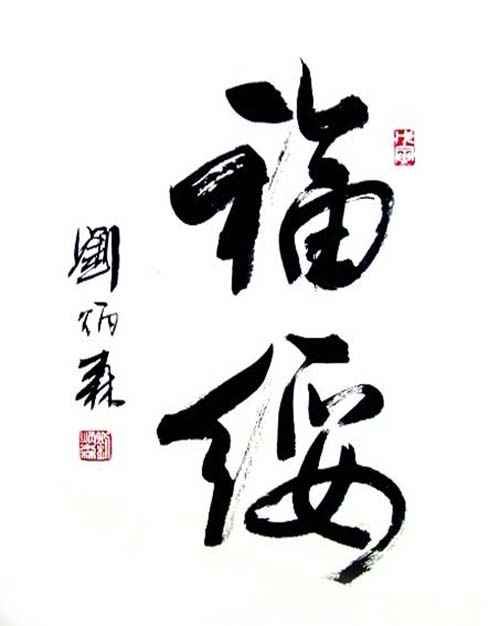 福綏
劉炳森